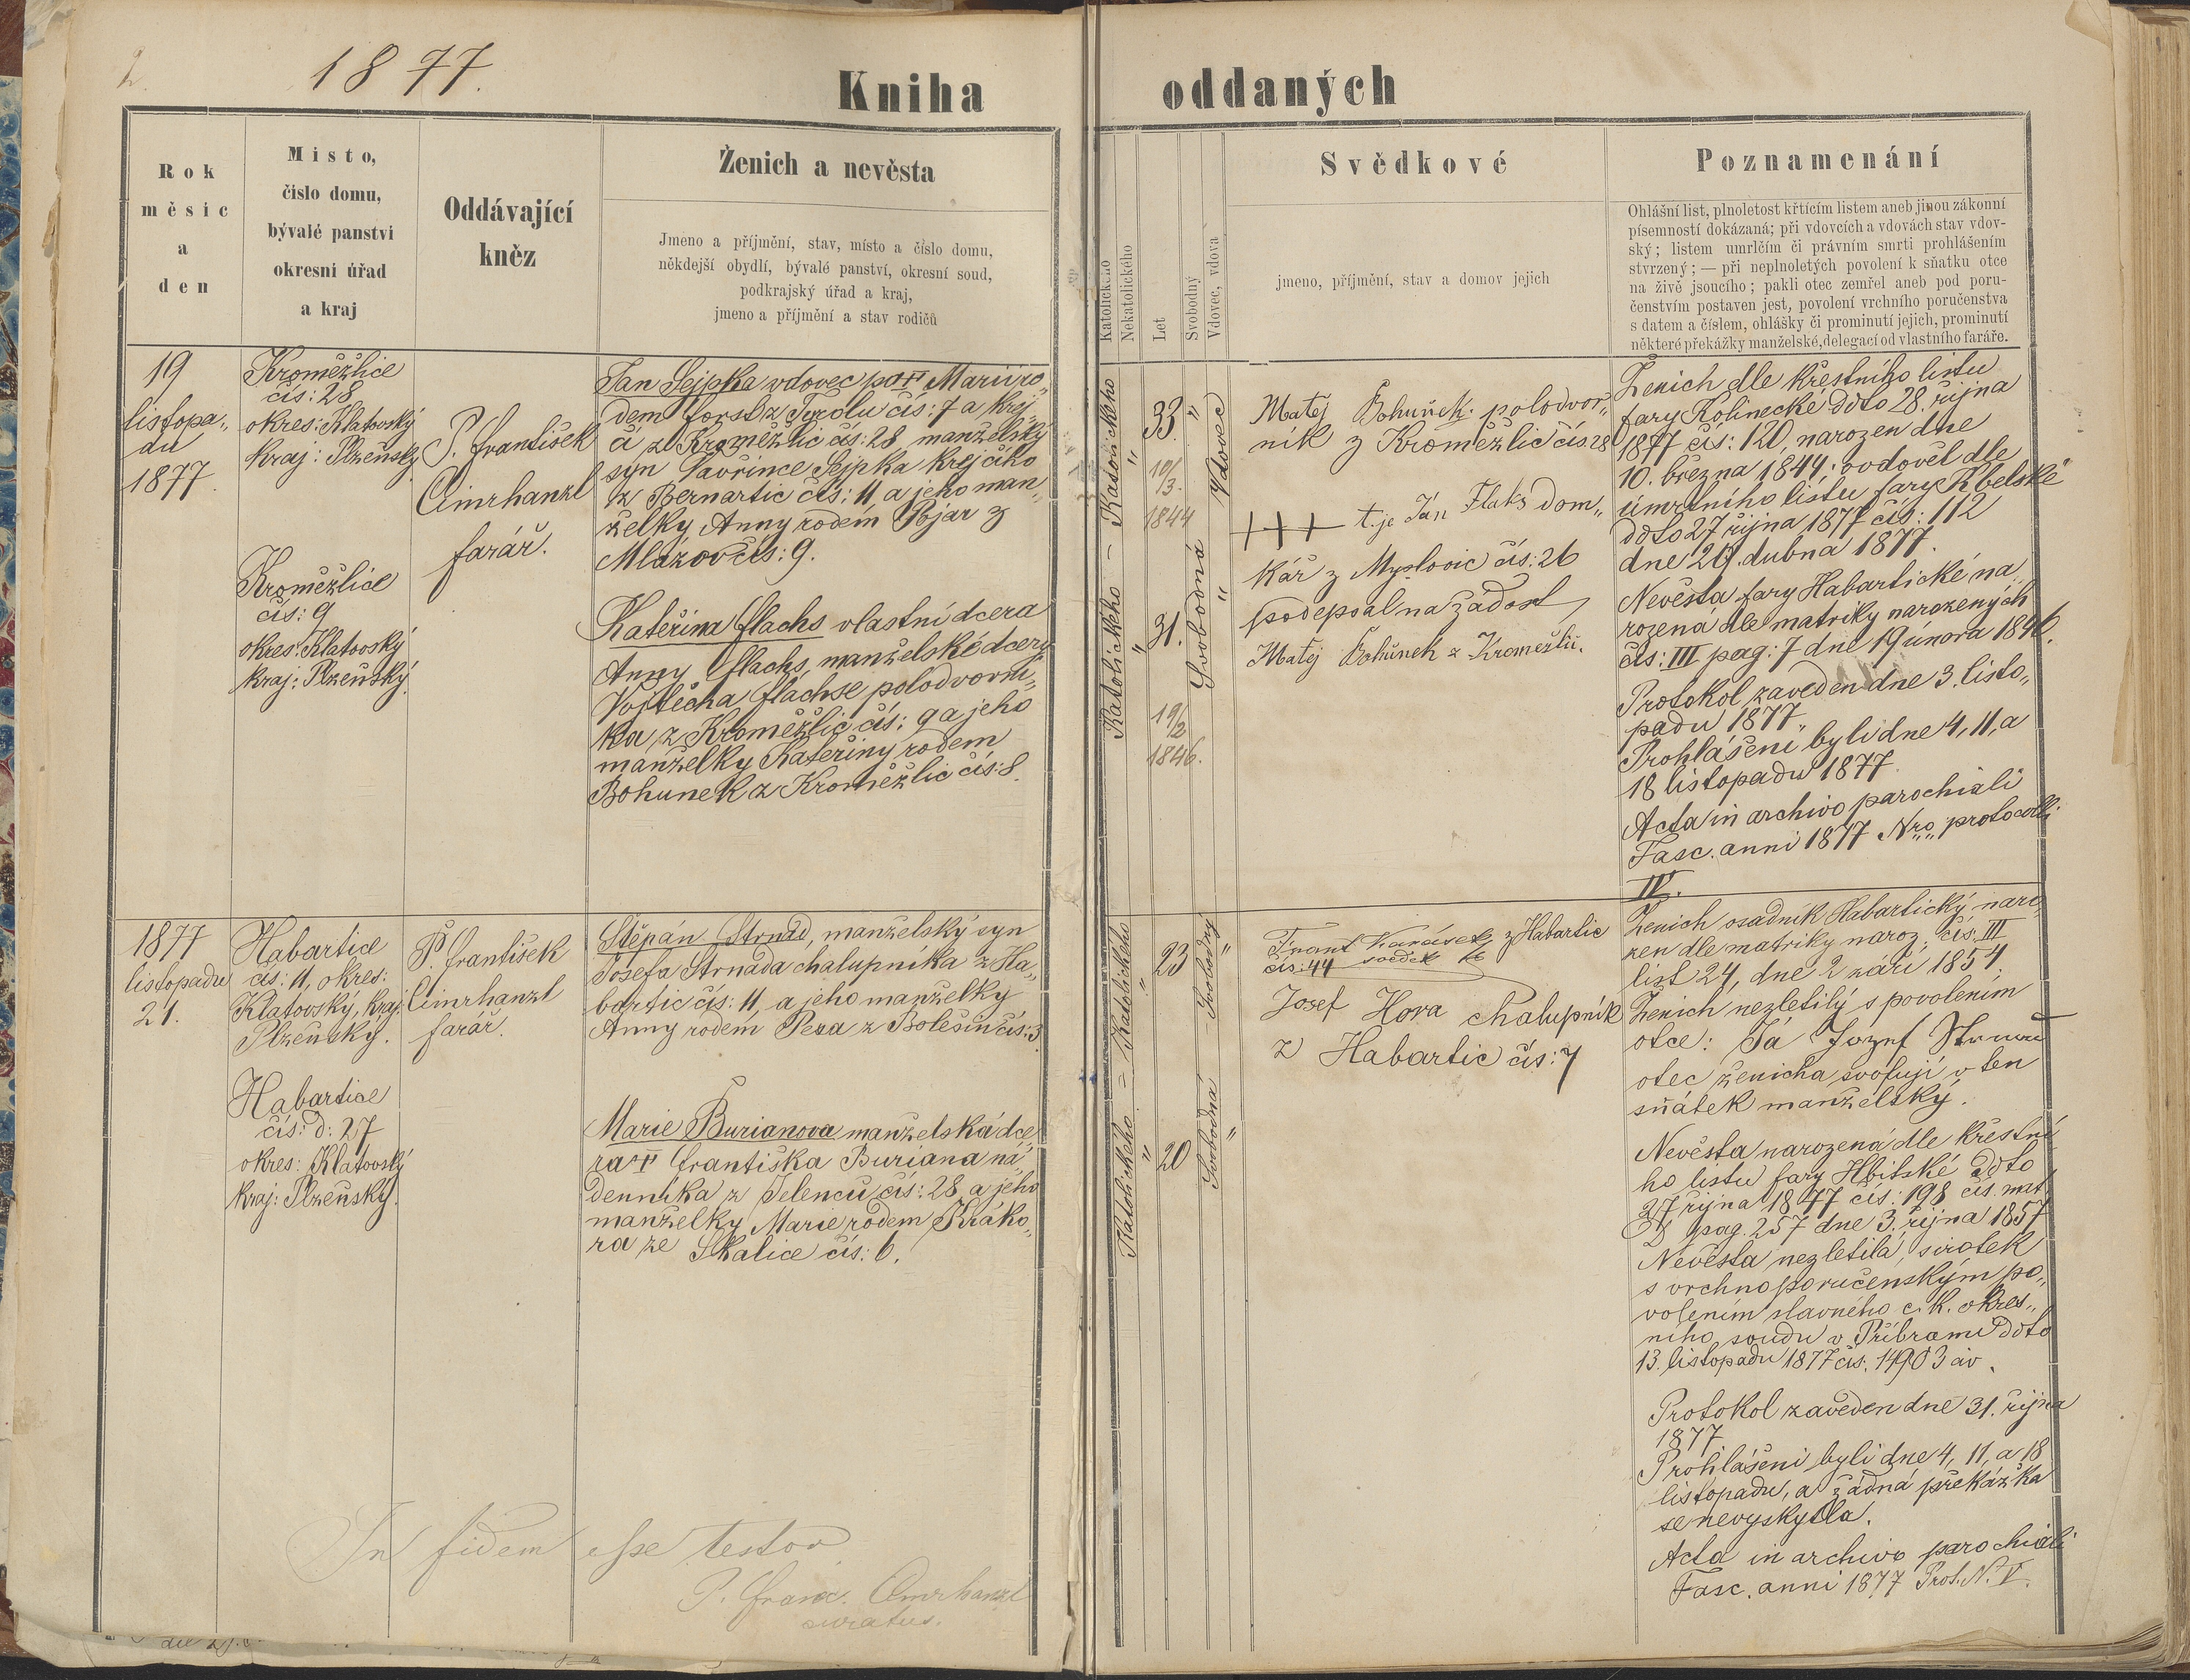 2.
1877.
Kniha
oddaných
Rok
měsíc
a
den
Místo,
číslo domu,
bývalé panství
okresní úřad
a kraj
Oddávající
kněz
Ženich a nevěsta
Jmeno a příjmění, stav, místo a číslo domu,
někdejší obydlí, bývalé panství, okresní soud,
podkrajský úřad a kraj,
jmeno a příjmění a stav rodičů
Katolického
Nekatolického
Let
Svobodný
Vdovec, vdova
Svědkové
jmeno, příjmění, stav a domov jejich
Poznamenání
Ohlášní list, plnoletost křtícím listem aneb jinou zákonní
písemností dokázaná; při vdovcích a vdovách stav vdov-
ský; listem umrlčím či právním smrti prohlášením
stvrzený; — při neplnoletých povolení k sňatku otce
na živě jsoucího; pakli otec zemřel aneb pod poru-
čenstvím postaven jest, povolení vrchního poručenstva
s datem a číslem, ohlášky či prominutí jejich, prominutí
některé překážky manželské, delegací od vlastního faráře.
19
listopa„
du
1877
Kroměžlice
čís: 28
okres: Klatovský
kraj: Plzeňský
P. František
Cimrhanzl
farář.
Jan Sejpka vdovec po † Marii ro„
dem forst z Tyrolu čís: 7 a krej„
čí z Kroměžlic čís: 28, manželský
syn Vavřince Sejpka krejčího
z Bernartic čís: 11 a jeho man„
želky Anny rodem Pojar z
Mlázov čís: 9.
Kroměžlice
čís: 9
okres: Klatovský
kraj: Plzeňský.
Kateřina flachs vlastní dcera
Anny flachs, manželské dcery
Vojtěcha flachse polodvorní„
ka z Kroměžlic čís: 9 a jeho
manželky Kateřiny rodem
Bohunek z Kroměžlic čís: 8.
Katolického – Katolického
33.
10/3.
1844
31.
19/2
1846.
Vdovec
Svobodná
Matěj Bohuňek polodvor„
ník z Kroměžlic čís. 28
+++ t. je Ján Flaks dom„
kář z Myslovic čís: 26
podepsal na žádost
Matěj Bohůnek z Kroměžlic.
Ženich dle křestního listu
fary Kolinecké ddto 28. října
1877 čís: 120, narozen dne
10. března 1844; ovdověl dle
úmrtního listu fary Kbelské
ddto 27 října 1877 čís: 112
dne 29. dubna 1877.
Nevěsta fary Habartické na„
rozená dle matriky narozených
čís: III pag: 7 dne 19 února 1846.
Protokol zaveden dne 3. listo„
padu 1877.
Prohlášeni byli dne 4, 11, a
18 listopadu 1877.
Acta in archivo parochiali
Fasc. anni 1877 Nro„ protocolli
IV.
1877
listopadu
21.
Habartice
čís: 11, okres:
Klatovský, kraj:
Plzeňský.
P. František
Cimrhanzl
farář.
Štěpán Strnad, manželský syn
Josefa Strnada chalupníka z Ha„
bartic čís: 11, a jeho manželky
Anny rodem Peza z Bolešin čís: 3.
Habartice
čís: d: 27
okres: Klatovský
kraj: Plzeňský.
Marie Burianova manželská dce
ra † františka Buriana ná„
denníka z Jelenců čís: 28 a jeho
manželky Marie rodem Kráko„
ra ze Skalice čís: 6.
Katolického = Katolického
23
20
Svobodný
Svobodná
Frant Karásek z Habartic
čís: 44 svědek
Josef Hora chalupník
z Habartic čís: 7
Ženich osadník Habartický, naro„
zen dle matriky naroz: čís: III
list 24, dne 2 září 1854.
Ženich nezletilý s povolením
otce: Já Jozef Strnad
otec ženicha, svoluji v ten
sňátek manželský.
Nevěsta narozená dle křestní
ho listu fary Hbitské ddto
27 října 1877 čís: 198 čís. mat
pag. 257 dne 3. října 1857
Nevěsta nezletilá, sirotek
s vrchnoporučenským po„
volením slavného c. k. okres„
ního soudu v Příbrami ddto
13. listopadu 1877 čís. 14903 civ.
Protokol zaveden dne 31. října
1877.
Prohlášeni byli dne 4, 11, a 18
listopadu, a žádná překážka
se nevyskytla.
Acta in archivo parochiali
Fasc. anni 1877 Prot. N. V.
In fidem esse testor
P. Franc. Cimrhanzl
curatus.